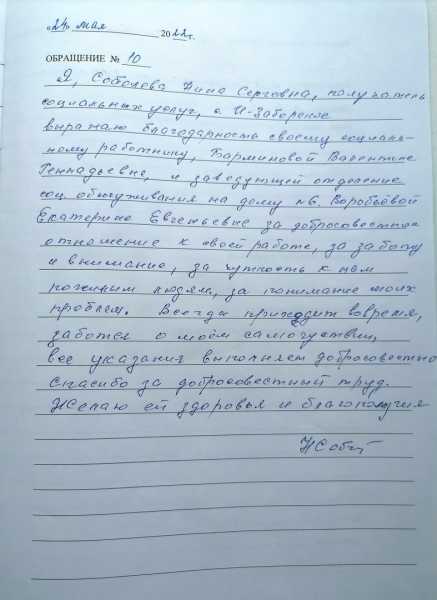 «24» мая 2022г.
ОБРАЩЕНИЕ № 10
Я, Соболева Нина Сергеевна, получатель
социальных услуг, с. И-Заборское
выражаю благодарность своему социаль-
ному работнику, Барминовой Валентине
Геннадьевне, и заведующей отделение
соц. обслуживания на дому №6. Воробьёвой
Екатерине Евгеньевне за добросовестное
отношение к своей работе, за заботу
и внимание, за чуткость к нам
пожилым людям, за понимание моих
проблем. Всегда приходит вовремя,
заботся о моём самочувствии,
все указания выполняет добросовестно
Спасибо за добросовестный труд.
Желаю ей здоровья и благополучия
НСоб